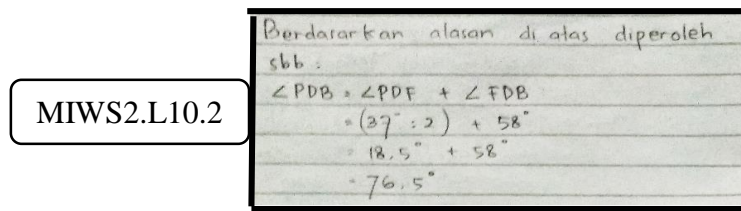 MIWS2.L10.2
Berdasarkan alasan di atas diperoleh
sbb :
∠PDB = ∠PDF + ∠FDB
= (37° : 2) + 58°
= 18,5° + 58°
= 76,5°